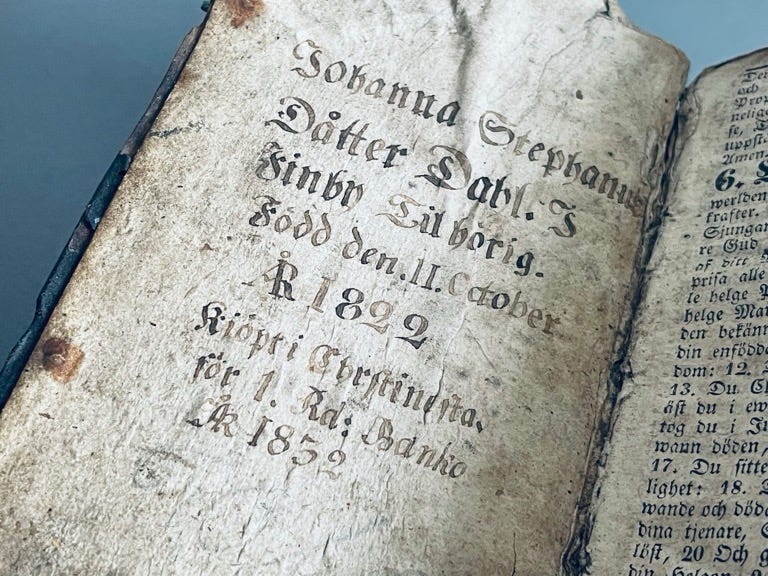 Johanna Stephanus
Dåtter Dahl. I
Finby Tilhörig.
Född den. 11. October
ÅR 1822
Kiöpt i Chrstinesta.
för 1. Rd: Banko
ÅR 1832
Den
och
Prop
nelige
se, T
uppst
Amen.
6.
werlden
krafter.
Sjungan
re Gud
af ditt
prisa alle
te helge P
helge Mar
den bekänn
din enfödde
dom: 12.
13. Du Ch
äst du i ew
tog du i Ju
wann döden,
17. Du sitte
lighet: 18.
wande och döda
dina tjenare,
löst, 20 Och g
din Helgan